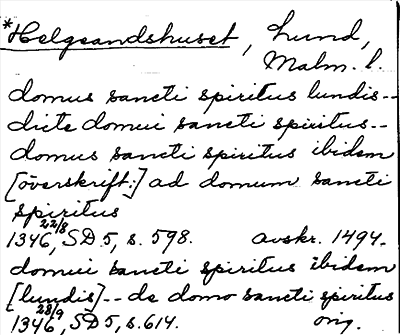 *Helgeandshuset, Lund,
Malm. l.
domus sancti spiritus lundis--
dicte domui sancti spiritus--
domus sancti spiritus ibidem
[överskrift:] ad domum sancti
spiritus
1346 22/8, SD 5, s. 598. avskr. 1494.
domui sancti spiritus ibidem
[lundis]--de domo sancti spiritus
1346 28/9, SD 5, s. 614. orig.